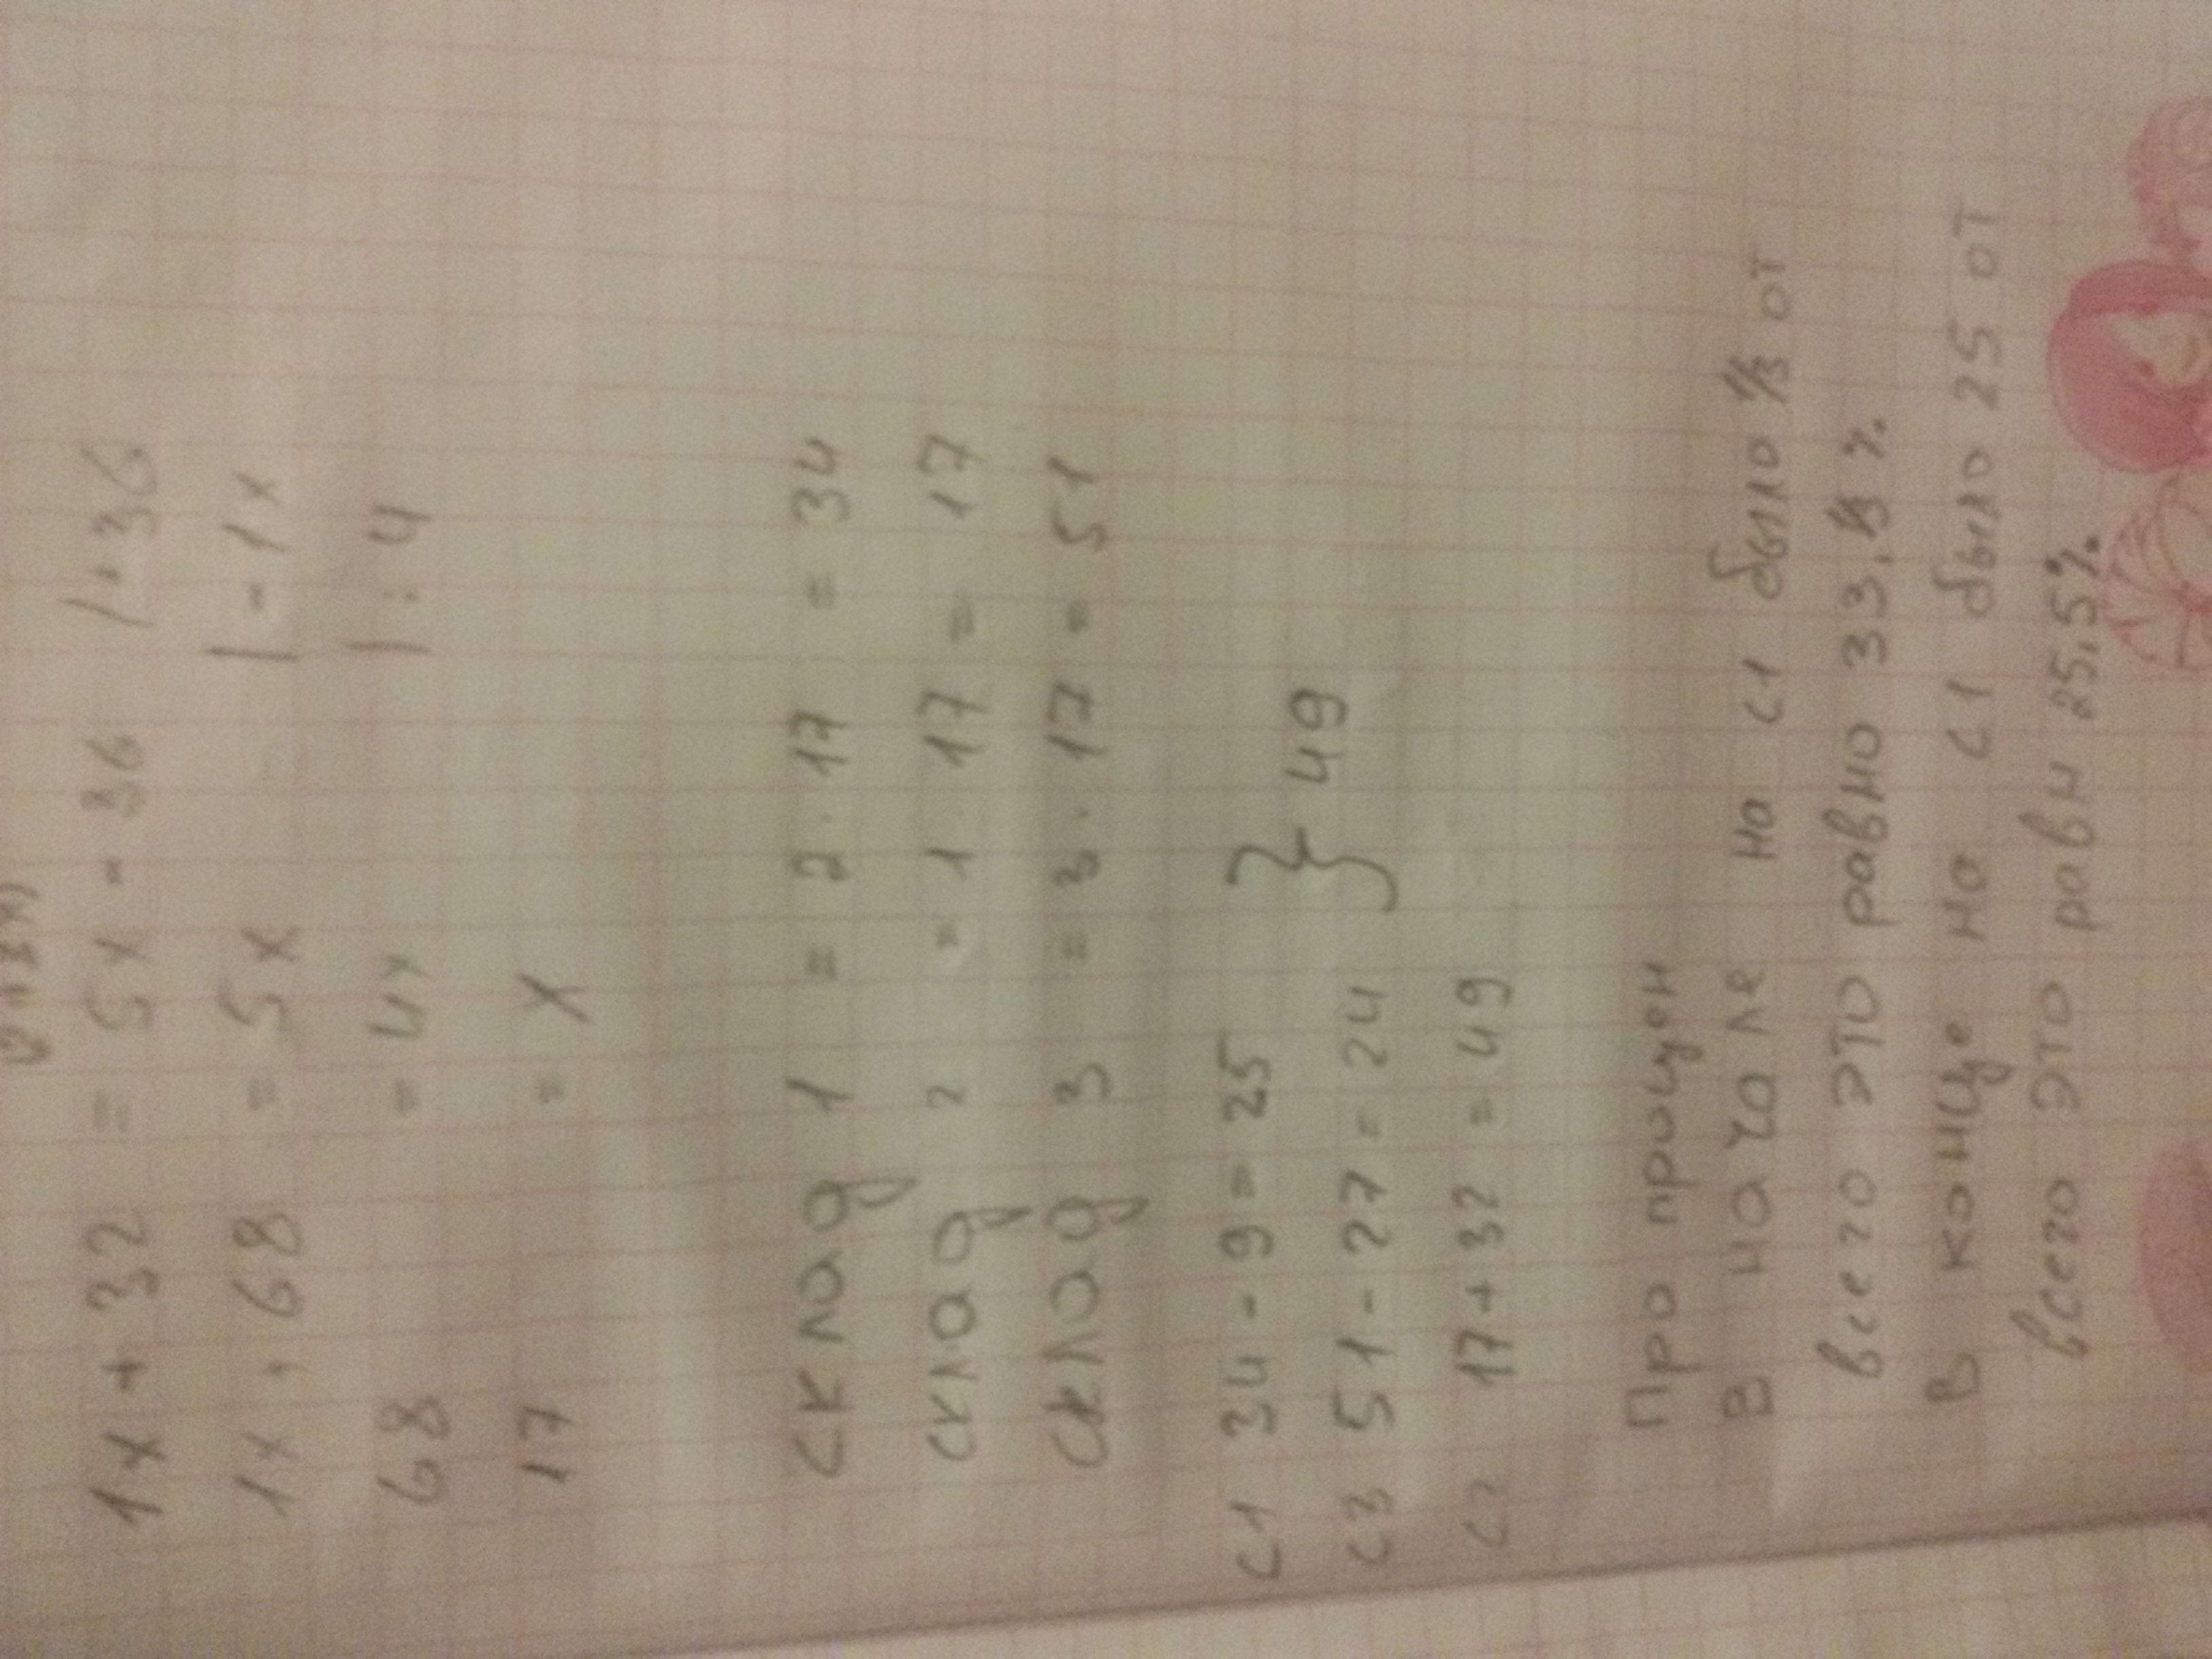 1x + 32 = 5x - 36 |+36
1x + 68 = 5x |-1x
68 = 4x |:4
17 = x
склад 1 = 2·17 = 34
склад 2 = 1·17 = 17
склад 3 = 3·17 = 51
С1 34-9=25
} 49
С3 51-27=24
С2 17+32=49
Про процен
В начале на С1 было 1/3 от
всего это равно 33,1/3 %.
В конце на С1 было 25 от
всего это равн 25,5%.